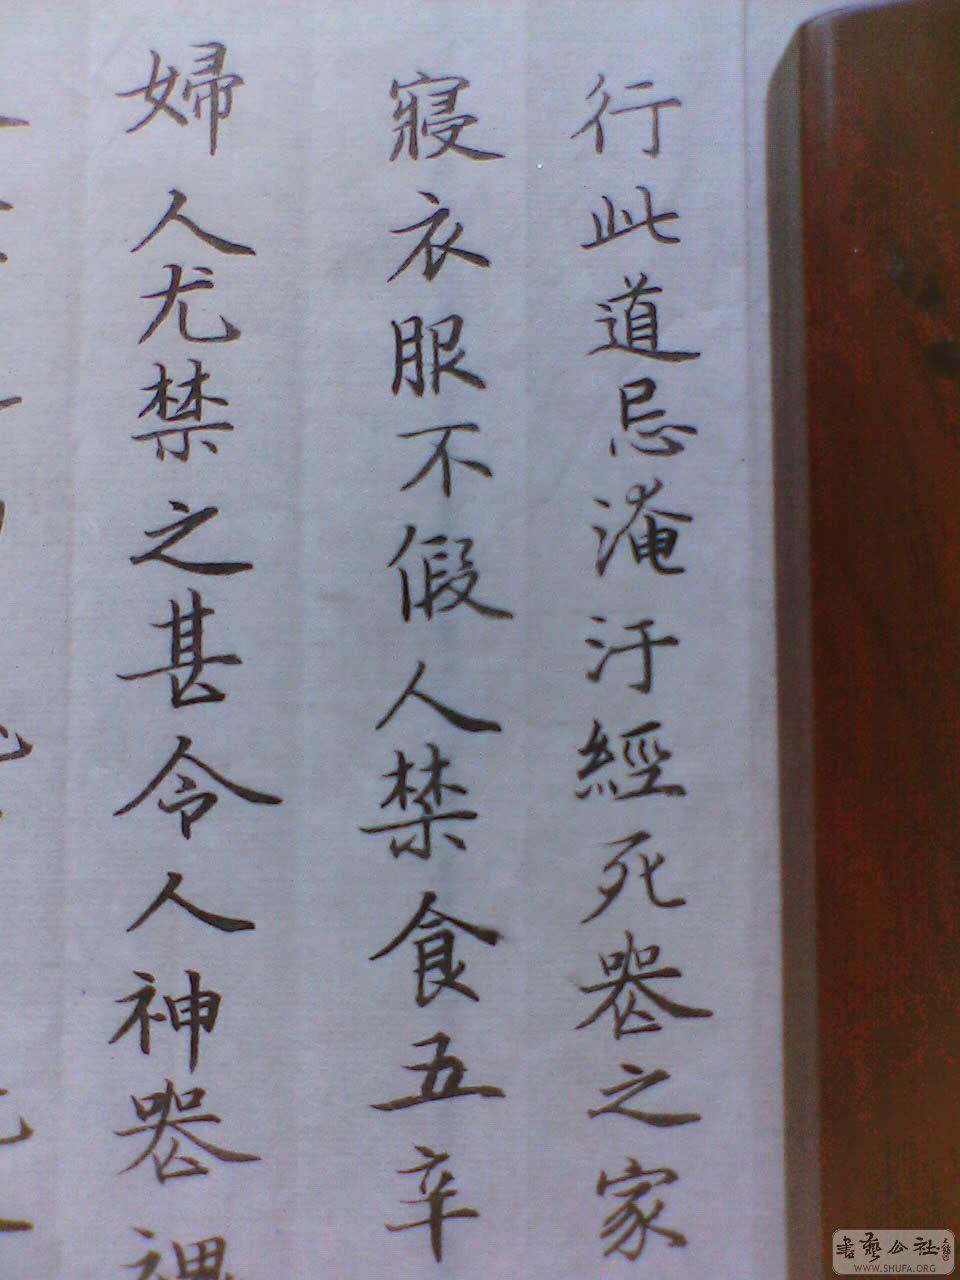 行此道忌淹汙經死喪之家
寢衣服不假人禁食五辛
婦人尤禁之甚令人神喪
書藝公社
WWW.SHUFA.ORG